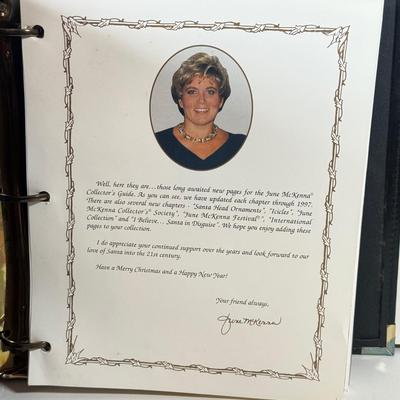 Well, here they are...those long awaited new pages for the June McKenna®
Collector's Guide. As you can see, we have updated each chapter through 1997.
There are also several new chapters - "Santa Head Ornaments", "Icicles", "June
McKenna Collector's® Society", "June McKenna Festival®", "International
Collection" and "I Believe... Santa in Disguise". We hope you enjoy adding these
pages to your collection.
I do appreciate your continued support over the years and look forward to our
love of Santa into the 21st century.
Have a Merry Christmas and a Happy New Year!
Your friend always,
June McKenna